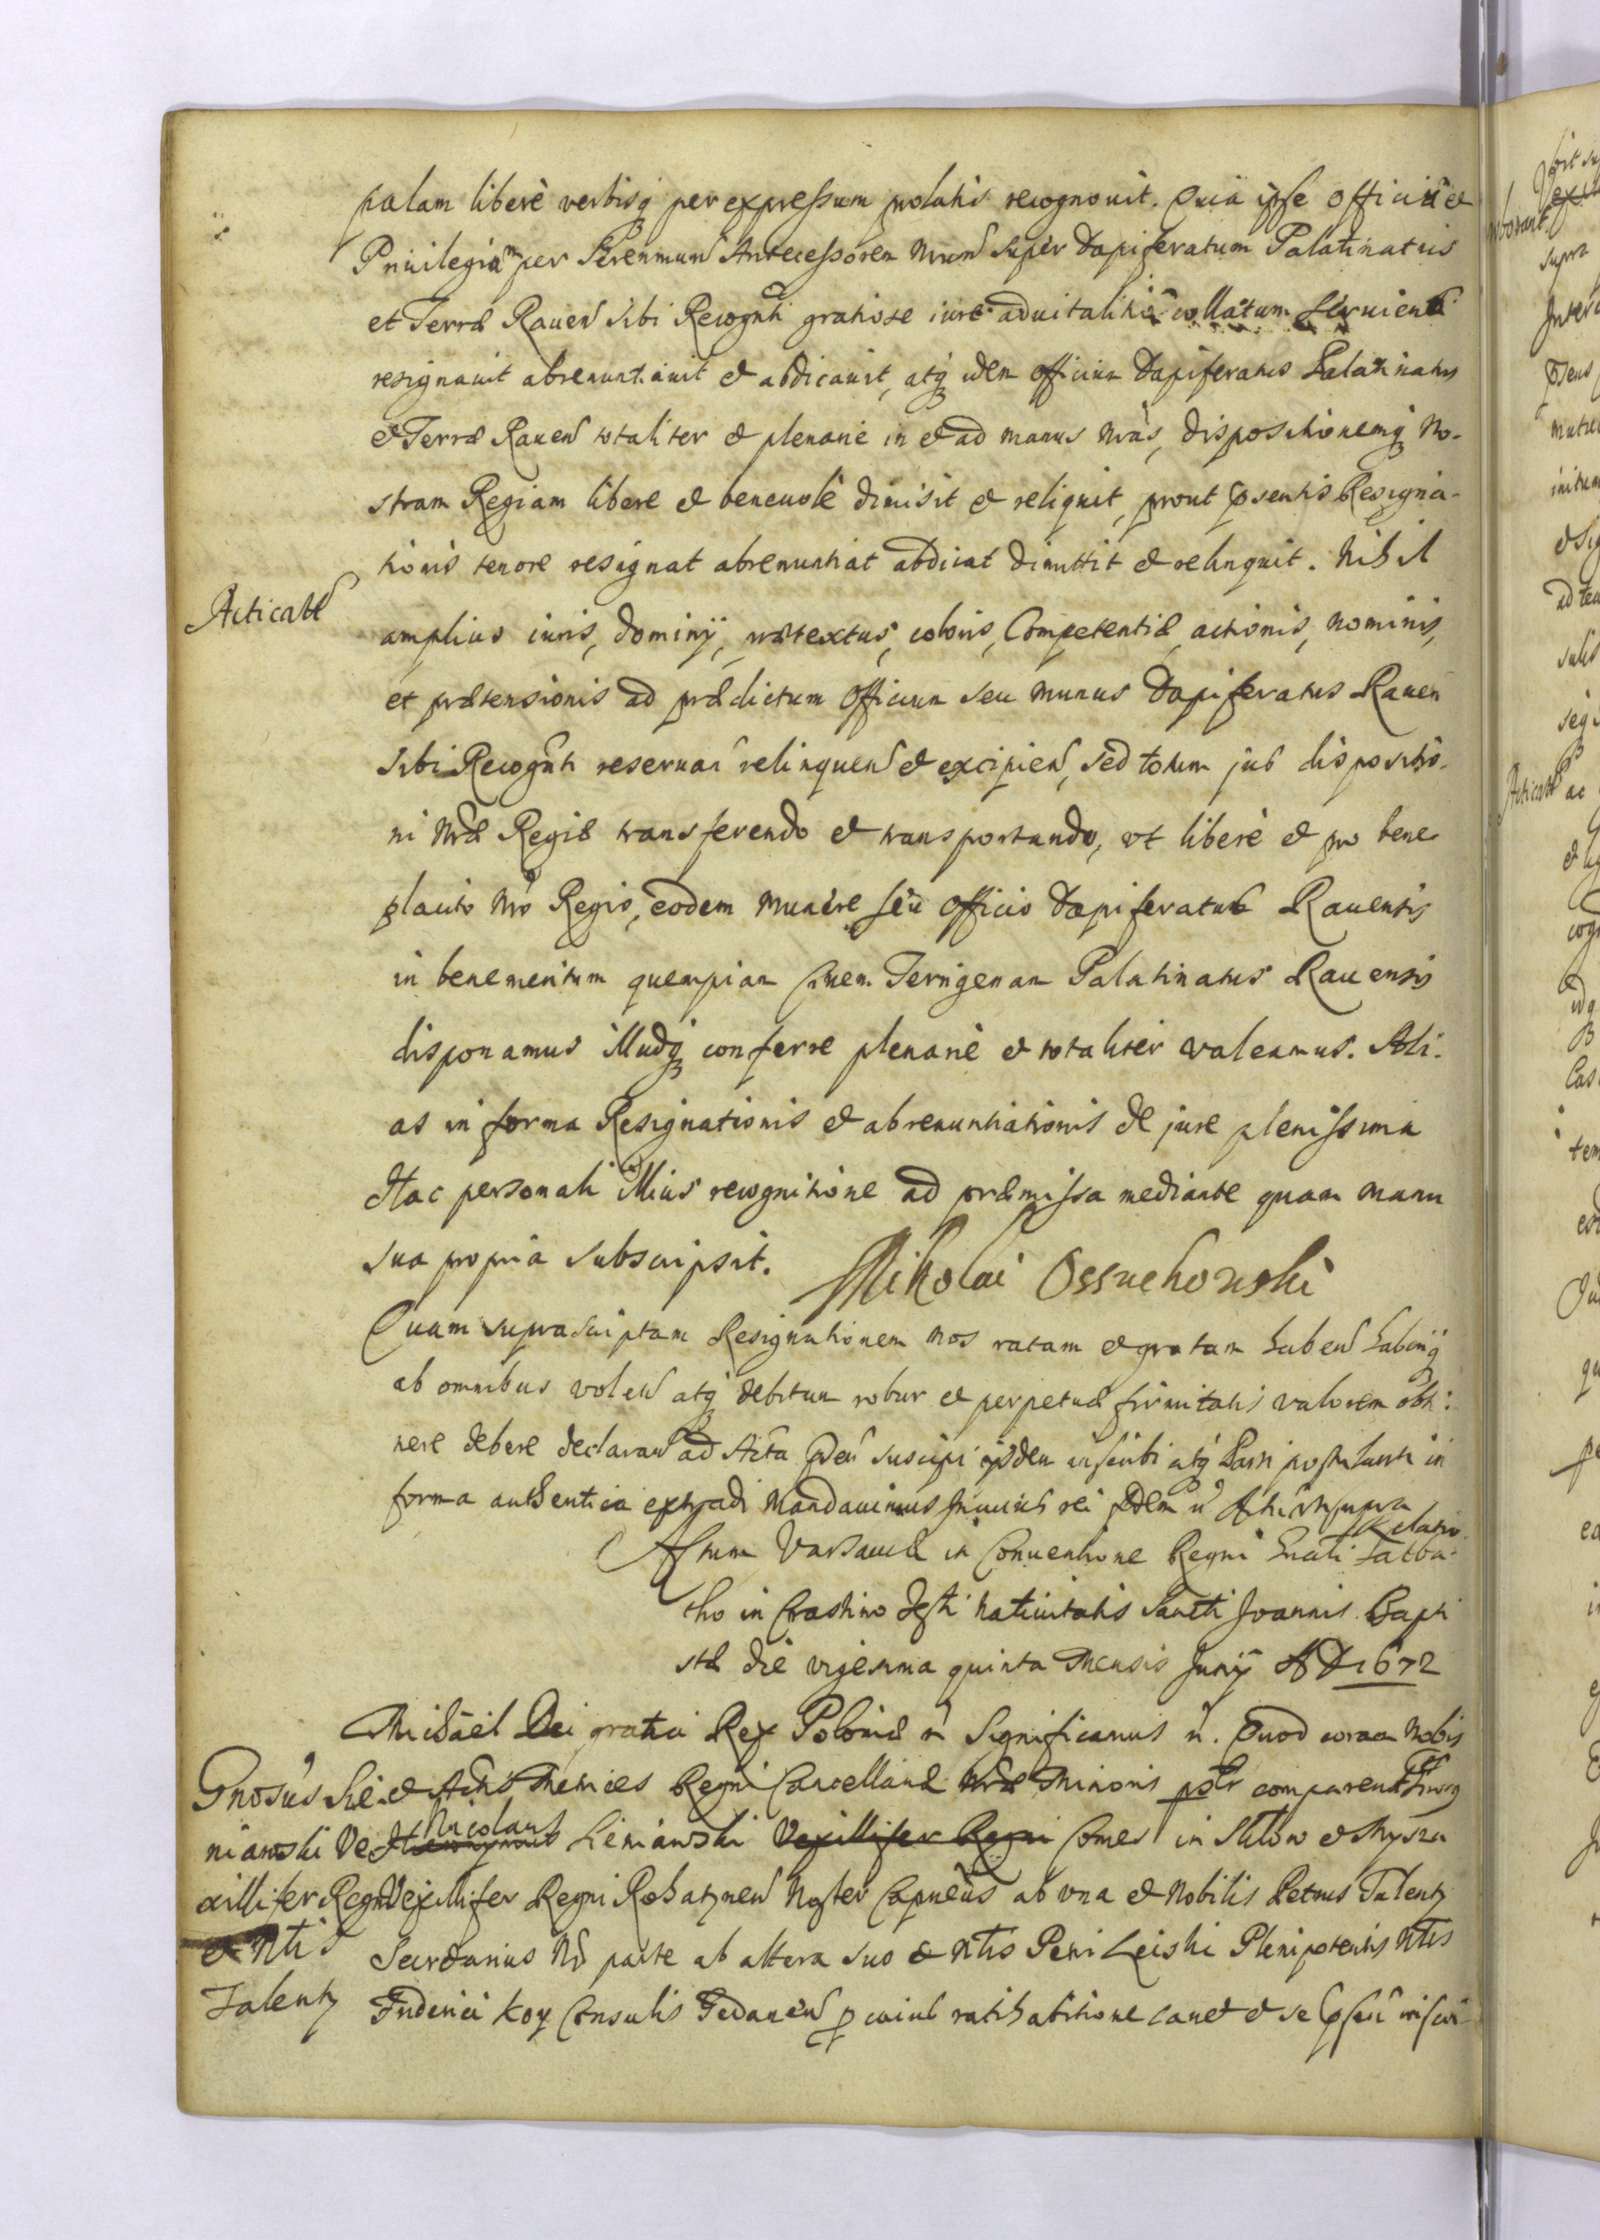 palam liberè verbisq per expressum prolatis recognovit. Quia ipse officiũ et
Privilegium per Serenmum Antecessorem Nrum super Dapiferatum Palatinatus
et Terræ Raven sibi Recognti gratiose iure advitalitio collatum servien
resignavit abrenuntiavit et abdicavit, atq idem officium Dapiferatus Palatinatus
et Terræ Raven totaliter et plenarie in et ad manus Nras, dispositionemq No-
stram Regiam libere et benevolè dimisit et reliquit, prout psentis Resigna-
tionis tenore resignat abrenuntiat abdicat dimittit et relinquit. Nihil
Acticat
amplius iuris, dominij, prætextus, coloris, Competentiæ, actionis, nominis,
et prætensionis ad prædictum officium seu munus Dapiferatus Raven
sibi Recognti reservan relinquen et excipien, sed totum jus dispositio-
ni Nræ Regiæ transferendo et transportando, vt liberè et pro bene
placito Nro Regio, eodem munere seu officio Dapiferatus Ravensis
in benemeritum quempiam Civem Terrigenam Palatinatus Ravensis
disponamus illudq conferre plenariè et totaliter valeamus. Ali-
as in forma Resignationis et abrenuntiationis de jure plenissima
Hac personali illius recognitione ad præmissa mediante quam manu
sua propria subscripsit. Mikolai Ossuchowski
Quam suprascriptam Resignationem nos ratam et gratam haben haberiq
ab omnibus volen atq debitum robur et perpetuæ firmitatis valorem obti-
nere debere declaran ad Acta psen suscipi ijsdem inscribi atq Parti postulanti in
forma authentica extradi mandavimus In cuius rei fidem
Relatio
Actum Varsaviæ in Conventione Regni Grali Sabba-
tho in Crastino Festi Nativitatis Sancti Joannis Bapti
stæ die vigesima quinta Mensis Junij AD 1672
Michaël Dei gratia Rex Poloniæ Significamus. Quod coram Nobis
et Actis Metrices Regni Cancellariæ Nræ Minoris psltr comparen
Gnosus Sie-
Nicolaus
niawski Ve Hieronymus Sieniawski Vexillifer Regni Comes in Sklow et Mysza
xillifer Regni Vexillifer Regni Rohatynen Noster Capneus ab vna et Nobilis Petrus Talenty
et Nlis Secretarius Nr parte ab altera suo et Nlis Petri Leiski Plenipotentis Nlis
Talenty Friderici Koy Consulis Gedanen p cuius ratihabitione cavet et se psen inscri-